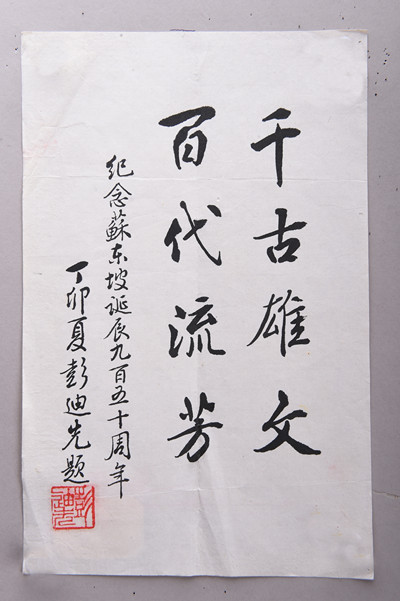 千古雄文
百代流芳
纪念蘇东坡诞辰九百五十周年
丁卯夏彭迪先题
彭迪先